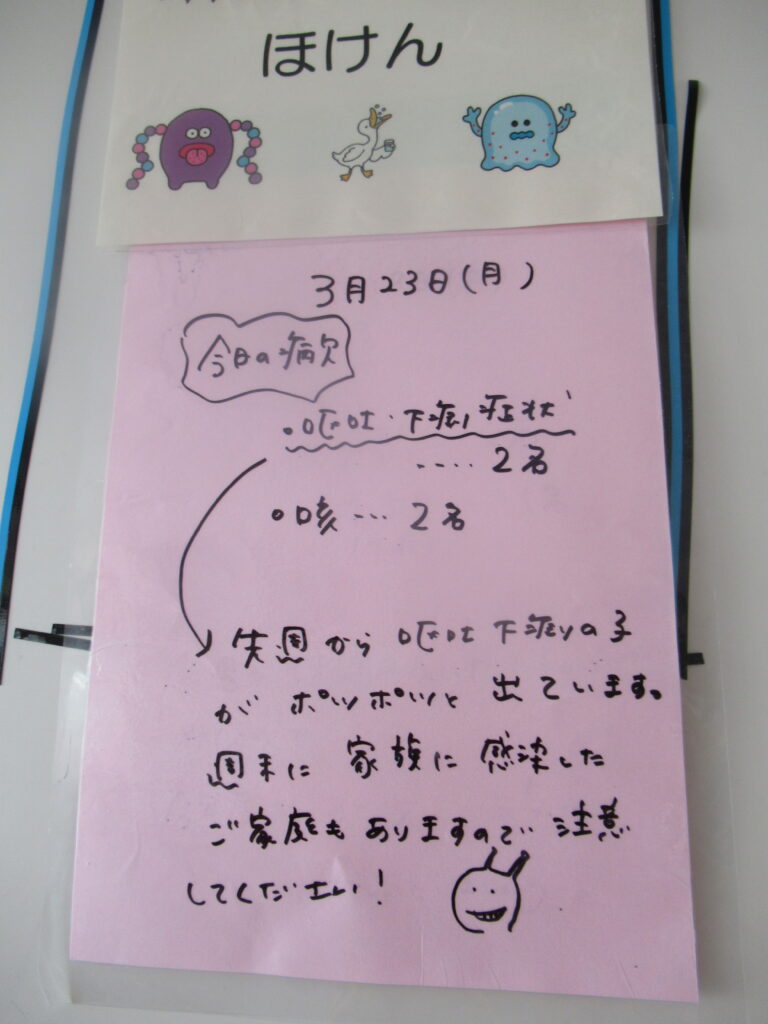 ほけん
3月23日(月)
今日の病欠
・嘔吐・下痢症状
‥‥2名
・咳…2名
先週から嘔吐下痢の子
がポツポツと出ています。
週末に家族に感染した
ご家庭もありますので注意
してください!